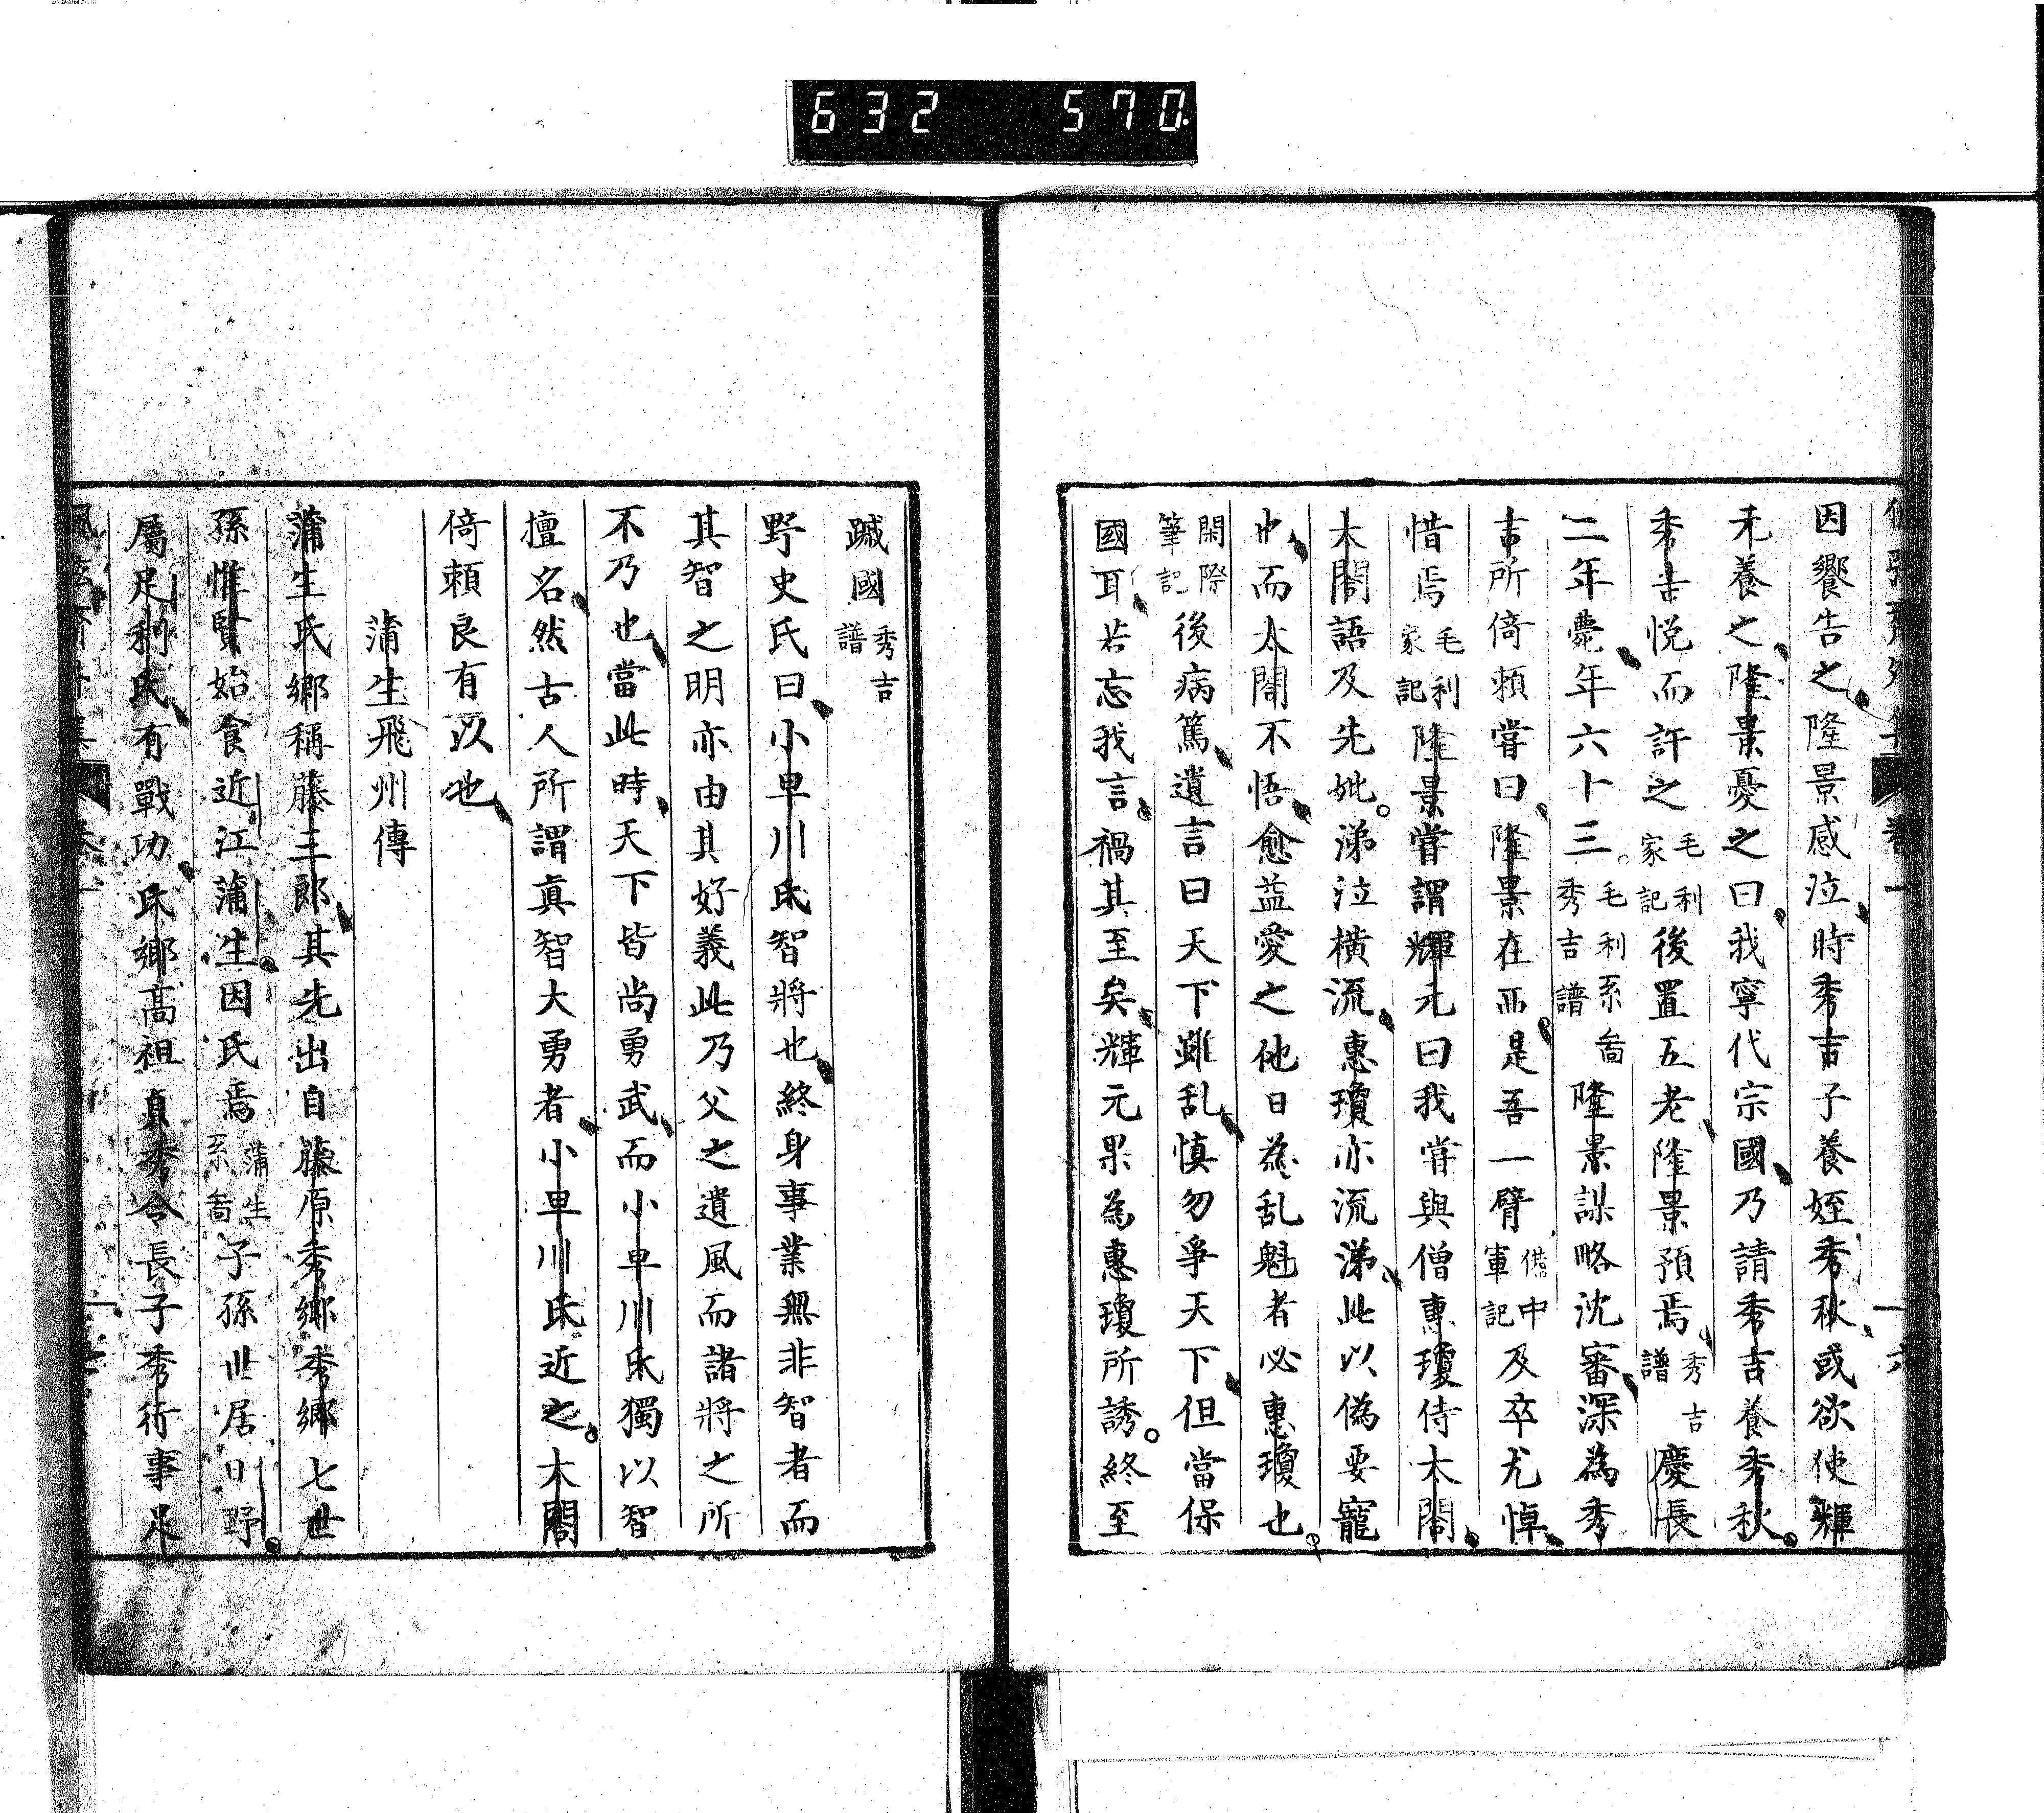 632 570.
因饗告之隆景感泣時秀吉子養姪秀秋或欲使輝
元養之隆景憂之曰我寧代宗國乃請秀吉養秀秋
秀吉悦而許之毛利家記後置五老隆景預焉秀吉譜慶長
二年薨年六十三毛利系啚秀吉譜隆景謀略沈審深為秀
吉所倚頼嘗曰隆景在西是吾一臂備中軍記及卒尤悼
惜焉毛利家記隆景嘗謂輝元曰我嘗與僧惠瓊侍太閤
太閤語及先妣涕泣横流惠瓊亦流涕此以偽要寵
也而太閤不悟愈益愛之他日為乱魁者必惠瓊也
閑際筆記後病篤遺言曰天下雖乱慎勿爭天下但當保
國耳若忘我言禍其至矣輝元果為惠瓊所誘終至
蹙國秀吉譜
野史氏曰小早川氏智將也終身事業無非智者而
其智之明亦由其好義此乃父之遺風而諸將之所
不乃也當此時天下皆尚勇武而小早川氏獨以智
擅名然古人所謂真智大勇者小早川氏近之太閤
倚頼良有以也
蒲生飛州傳
蒲生氏郷稱藤三郎其先出自藤原秀郷秀郷七世
孫惟賢始食近江蒲生因氏焉蒲生系啚子孫世居日野
屬足利氏有戰功氏郷高祖貞秀令長子秀行事足